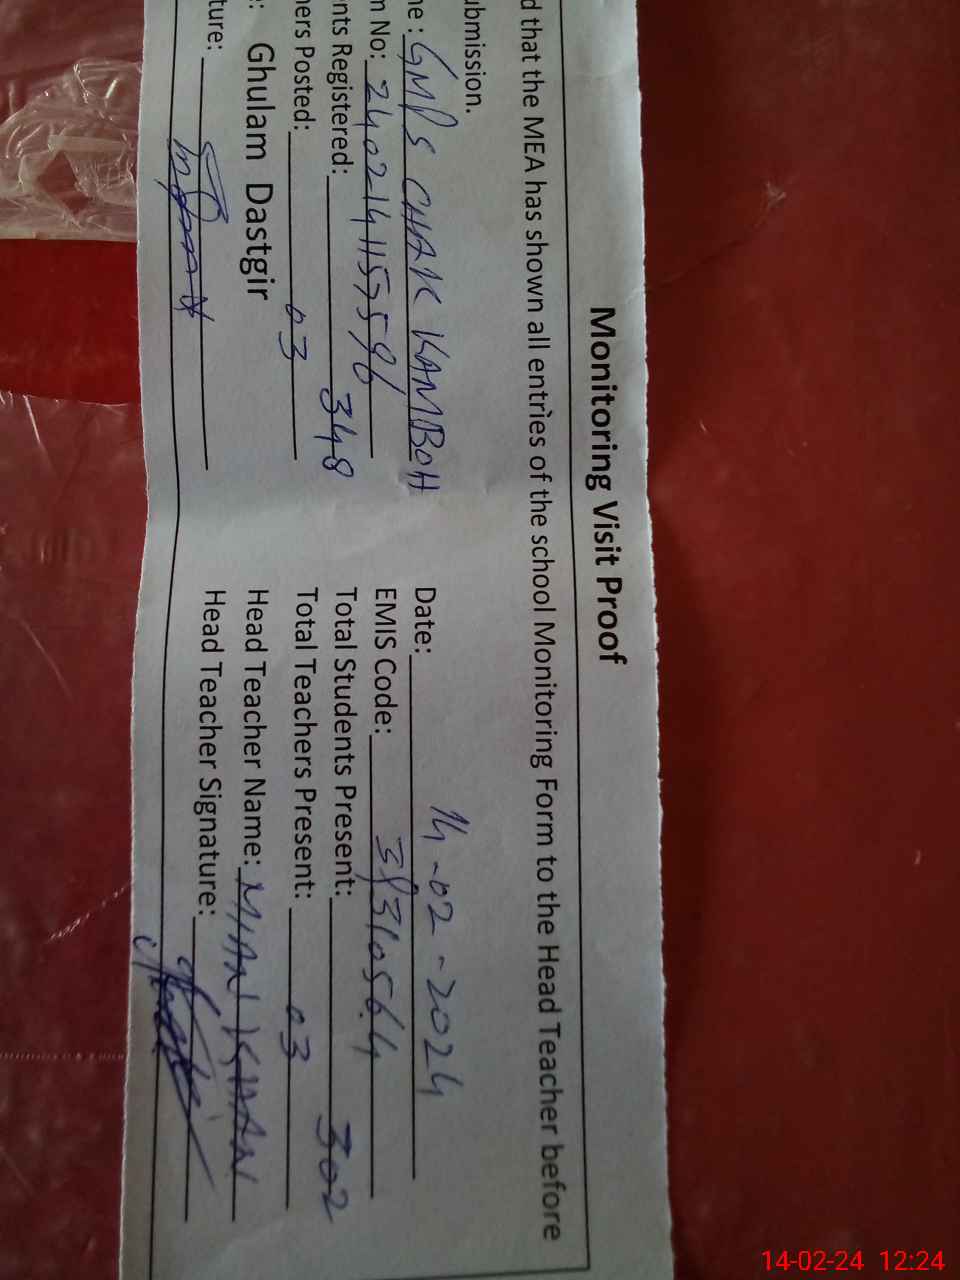 Monitoring Visit Proof
d that the MEA has shown all entries of the school Monitoring Form to the Head Teacher before
ubmission.
ne : GMPS CHAK KAMBOH Date: 14-02-2024
m No: 24021411557596 EMIS Code: 38310564
nts Registered: 348 Total Students Present: 302
ners Posted: 03 Total Teachers Present: 03
e: Ghulam Dastgir Head Teacher Name: MIANI KHAN
ture: Head Teacher Signature:
14-02-24 12:24